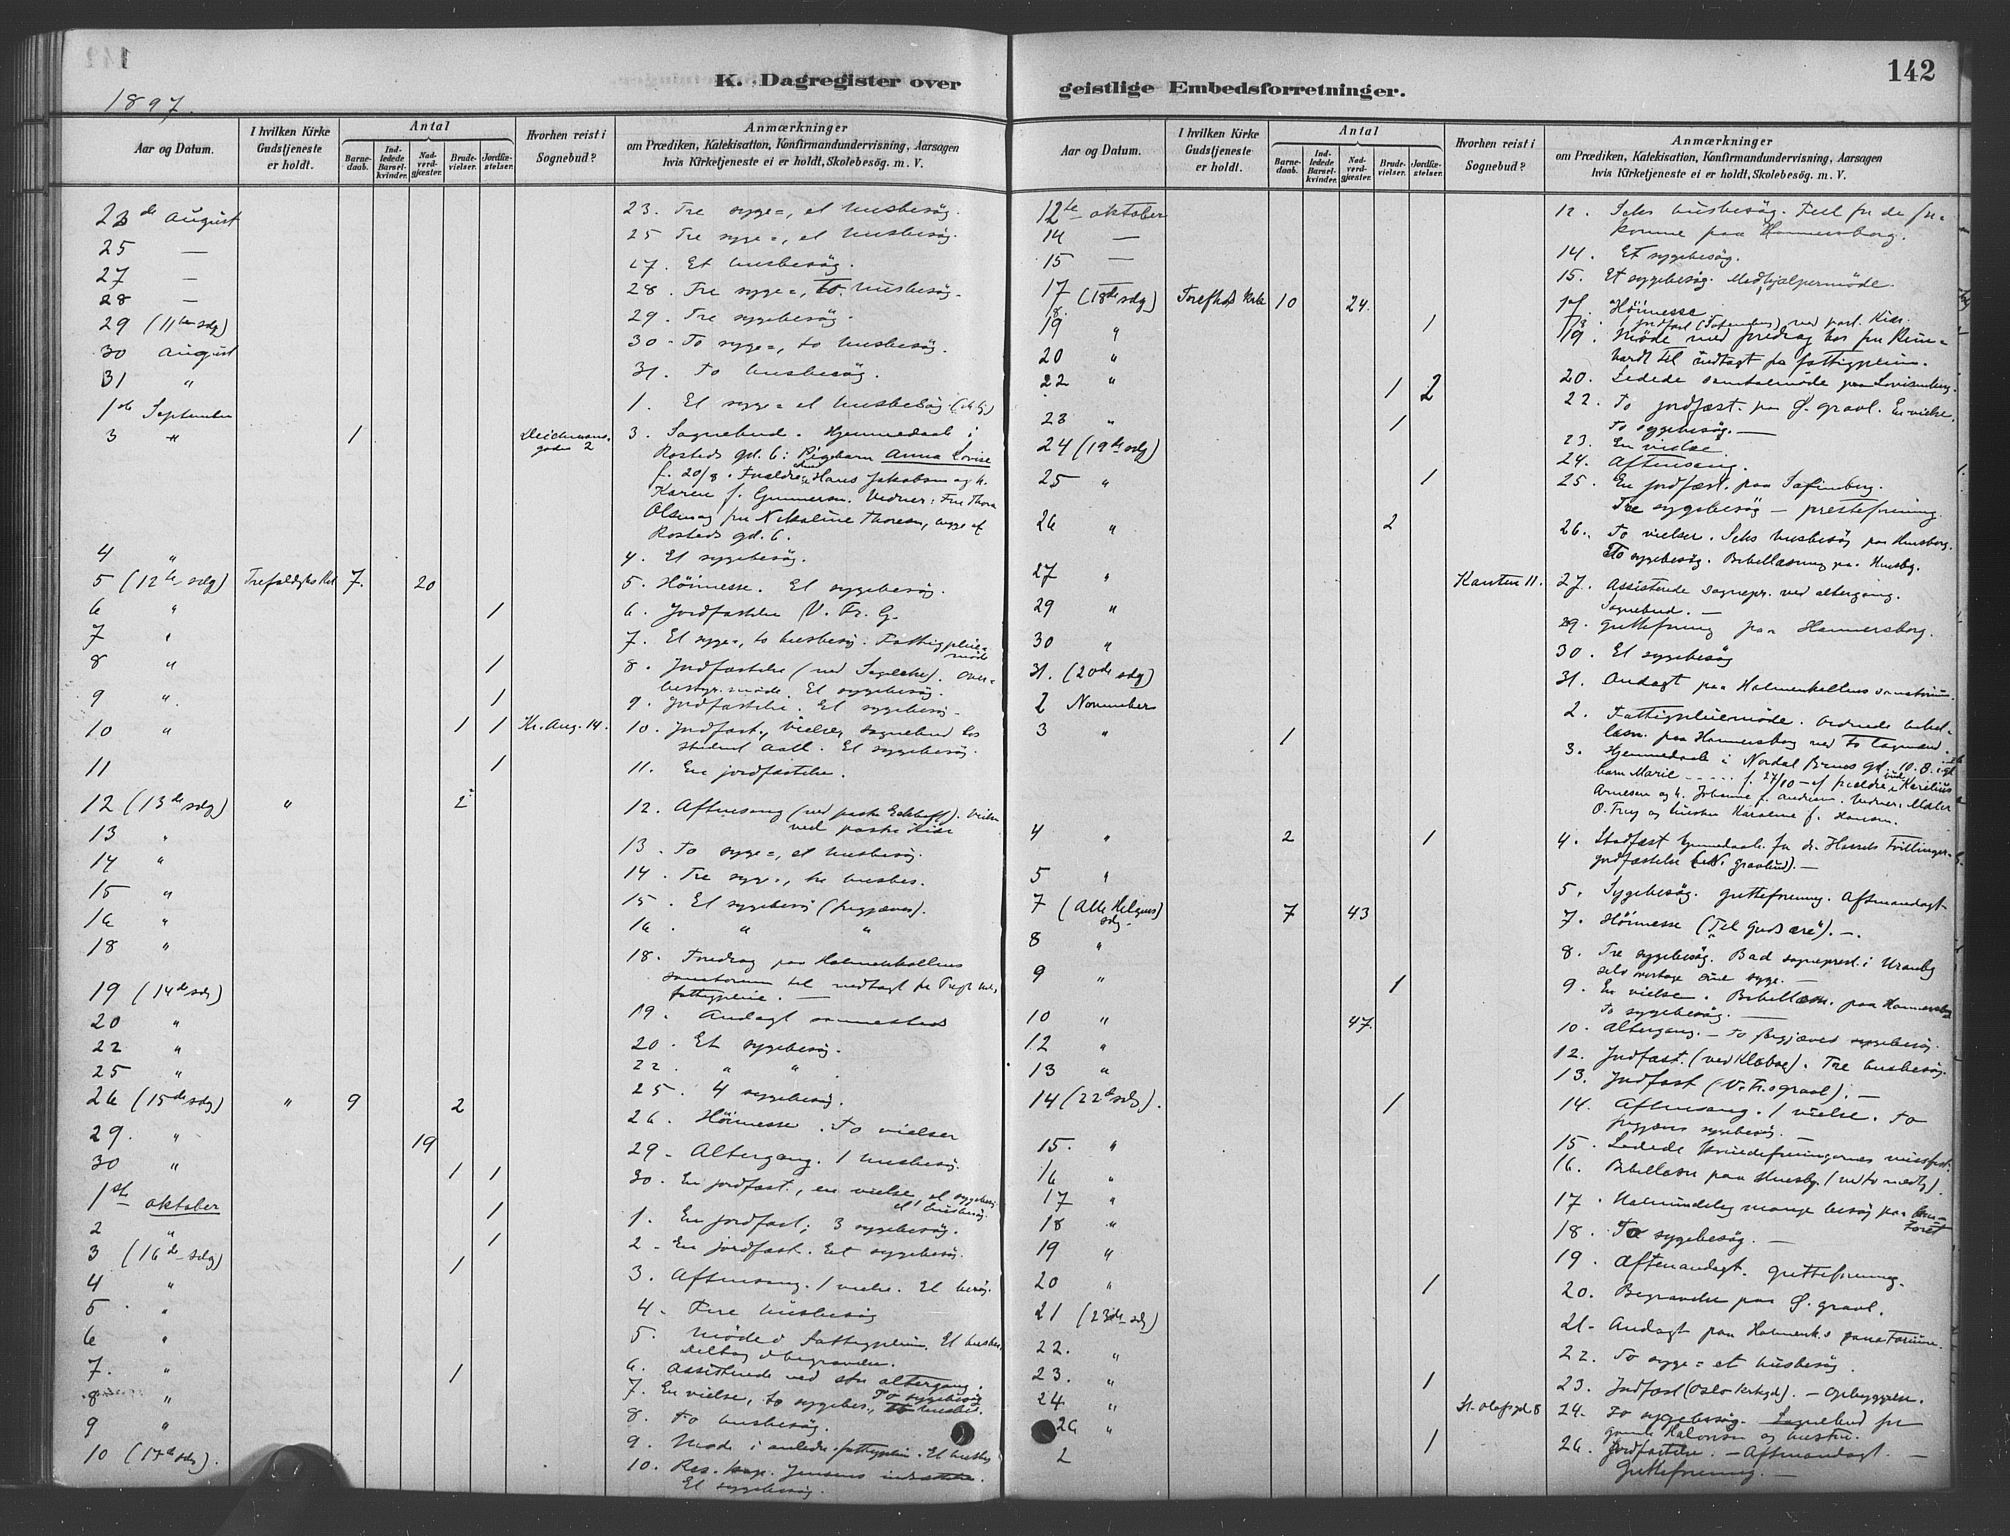 K. Dagregister over
1897.
Aar og Datum.
I hvilken Kirke Gudstjeneste er holdt.
Antal
Barnedaab.
Indledede Barselkvinder.
Nadverdgjæster.
Brudevielser.
Jordfæstelser.
Hvorhen reist i Sognebud?
Anmærkninger
om Prædiken, Katekisation, Konfirmandundervisning, Aarsagen
hvis Kirketjeneste ei er holdt, Skolebesøg. m. V.
23de August 23. Tre syge=, et husbesøg.
25 — 25 Tre syge=, et husbesøg.
27 — 27. Et husbesøg.
28 — 28. Tre syge=, to husbesøg.
29 (11te sdg) 29. Tre sygebesøg.
30 August 30. To syge=, to husbesøg.
31 " 31. To husbesøg.
1ste September 1. Et syge= et husbesøg
3 " 1 Deichmans gade 2 3. Sognebud. Hjemmedaab i
Rosteds gd. 6: Pigebarn Anna Lovise
f. 20/8. Forældre: Hans Jakobsen og h.
Karen f. Gunnersen. Vidner: Fru Thora
Olsen og fru Nikoline Thoresen, begge af
Rosteds gd. 6.
4 " 4. Et sygebesøg.
5 (12te sdg) Trefoldigheds Kirke 7. 20 5. Höimesse. Et sygebesøg.
6 " 1 6. Jordfæstelse (V. Fr. G.
7 " 7. Et syge=, to husbesøg. Fattigpleie=
møde
8 " 1 8. Jordfæstelse (ved ). Over=
bestyr. møde. Et sygebesøg.
9 " 1 9. Jordfæstelse. Et sygebesøg.
10 " 1 1 Kr. Aug. 14. 10. Jordfæst., vielse, sognebud hos
student Aall. Et sygebesøg.
11 1 11. En jordfæstelse.
12 (13de sdg) " 2 12. Aftensang (ved pastor Eckhoff). Vielser
ved pastor
13 " 13. To syge=, et husbesøg.
14 " 14. Tre syge=, tre husbes.
15 " 15. Et sygebesøg (forgjæves).
16 " 16. " "
18 " 18. Foredrag paa Holmenkollens
sanatorium til indtægt for
fattigpleie. —
19 (14de sdg) 19. Andagt sammesteds
20 " 20. Et sygebesøg.
22 " 22. " "
25 " 25. 4 sygebesøg.
26 (15de sdg) " 9 2 26. Höimesse. To vielser
29. " 19 29. Altergang. 1 husbesøg.
30 " 1 1 30. En jordfæst., en vielse, et sygebesøg
et husbesøg.
1ste oktober 1 1. En jordfæst; 3 sygebesøg.
2 " 1 2. En jordfæst. Et sygebesøg.
3 (16de sdg) 1 3. Aftensang. 1 vielse. Et besøg.
4 " 4. Fire husbesøg
5 " 5. Møde i fattigpleien. Et husbes.
Deltog i begravelse.
6 " 6. Assisterede ved stor altergang.
To sygebesøg
7. " 1 7. En vielse, to sygebes., husbes.
8 " 8. To husbesøg.
9 " 9. Møde i fattigpleien. Et husbesøg
10 (17de sdg). 10. Res. kap. Jensens indsættelse.
Et sygebesøg.
geistlige Embedsforretninger.
142
Aar og Datum.
I hvilken Kirke Gudstjeneste er holdt.
Antal
Barnedaab.
Indledede Barselkvinder.
Nadverdgjæster.
Brudevielser.
Jordfæstelser.
Hvorhen reist i Sognebud?
Anmærkninger
om Prædiken, Katekisation, Konfirmandundervisning, Aarsagen
hvis Kirketjeneste ei er holdt, Skolebesøg. m. V.
12te oktober 12. Seks husbesøg.
paa Hammersborg.
14 — 14. Et sygebesøg.
15 — 15. Et sygebesøg. Medhjælpermøde.
17 (18de sdg) Trefhds Kirke 10 24. 17. Höimesse
18.
19 " 1 19. Møde med foredrag hos fru
til indtægt for fattigpleien.
20 " 20. Ledede samtalemøde paa Lovisenberg.
22 " 1 2 22. To jordfæst. paa Ø. gravl. En vielse.
To sygebesøg. —
23 " 1 23. En vielse.
24 (19de sdg) 24. Aftensang.
25 " 1 25. En jordfæst. paa Sofienberg.
Tre sygebesøg — presteforening.
26 " 2 26. To vielser. Seks husbesøg paa
To sygebesøg. Bibellæsning paa
27 " Karsten 11. 27. Assisterede sognepr. ved altergang.
Sognebud. —
29 " 29. Gutteforening paa Hammersborg.
30 " 30. Et sygebesøg
31. (20de sdg) 31. Andagt paa Holmenkollens sanatorium.
2 November 2. Fattigpleiemøde.
læsn. paa Hammersborg ved to
3 " 1 3. Hjemmedaab i Nordal Bruns gd. 10.
barn Marie f. 27/10 af forældre
Arnesen og h. Johanne f. Andersen. Vidner:
O. og hustru Karoline f. Hansen.
4 " 2 1 4. Stadfæst hjemmedaab. Tvillinger.
Jordfæstelse gravlund). —
5 " 5. Sygebesøg. Gutteforening. Aftenandagt
7 (Alle Helgens sdg. 7 43 7. Höimesse ("Til Guds ære"). —
8 " 8. Tre sygebesøg. Bad sogneprest i
selv overtage sine syge. —
9 " 1 9. En vielse. Bibellæsn. paa Hammersborg
To sygebesøg. —
10 " 47. 10. Altergang. — To forgjæves sygebesøg.
12 " 12. Jordfæst. Tre husbesøg.
13 " 13. Jordfæst (V. Fr. s gravl). —
14 (22de sdg). 1 14. Aftensang. 1 vielse. To
forgjæves sygebesøg. —
15. " 15. Ledede Kvindeforeningernes missfest.
16 " 16. Bibellæsn paa
17 " 17. Ualmindelig mange besøg paa
18 " 18. To sygebesøg. —
19 " 19. Aftenandagt. Gutteforening.
20 " 1 20. Begravelse paa Ø. gravl.
21 (23de sdg) 21. Andagt paa Holmenk.s sanatorium.
22. " 22. To syge= et husbesøg.
23. " 1 23. Jordfæst (Oslo kirkgd). — Opbyggelse.
24 " St. Olafs gd 8 24. To sygebesøg. Sognebud for
gamle og hustru.
26 " 1 26. Jordfæstelse. — Aftenandagt. —
Gutteforening. —
2